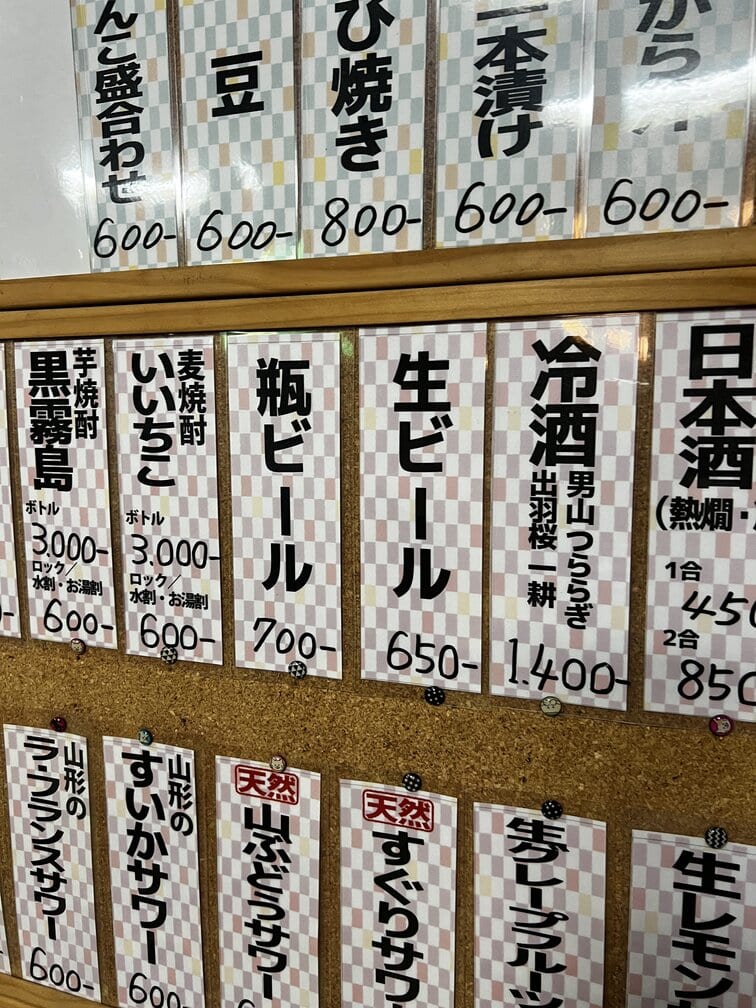 んこ盛合わせ
600-
豆
600-
ひ焼き
800-
一本漬け
600-
から
600-
芋焼酎
黒霧島
ボトル
3,000-
ロック／
水割・お湯割
600-
麦焼酎
いいちこ
ボトル
3,000-
ロック／
水割・お湯割
600-
瓶ビール
700-
生ビール
650-
冷酒
男山つららぎ
出羽桜 一耕
1.400-
日本酒
(熱燗・
1合
450
2合
850
山形の
ラ・フランスサワー
600-
山形の
すいかサワー
600-
天然
山ぶどうサワー
天然
すぐりサワ
生グレープフルーツ
生レモン